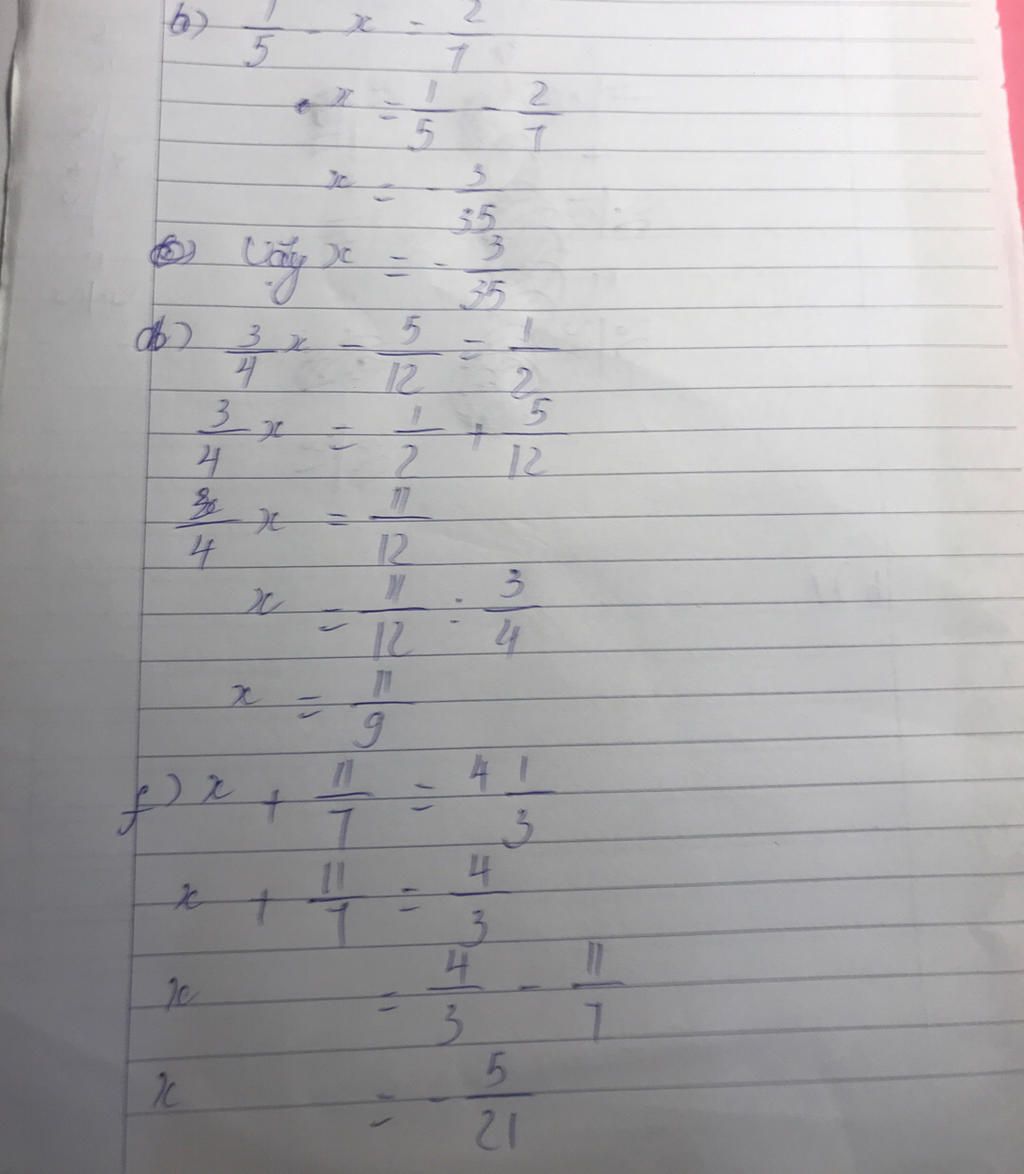 b) 1/5 - x = 2/7
x = 1/5 - 2/7
x = - 3/35
Vậy x = - 3/35
d) 3/4 x - 5/12 = 1/2
3/4 x = 1/2 + 5/12
3/4 x = 11/12
x = 11/12 : 3/4
x = 11/9
f) x + 11/7 = 4 1/3
x + 11/7 = 4/3
x = 4/3 - 11/7
x = - 5/21